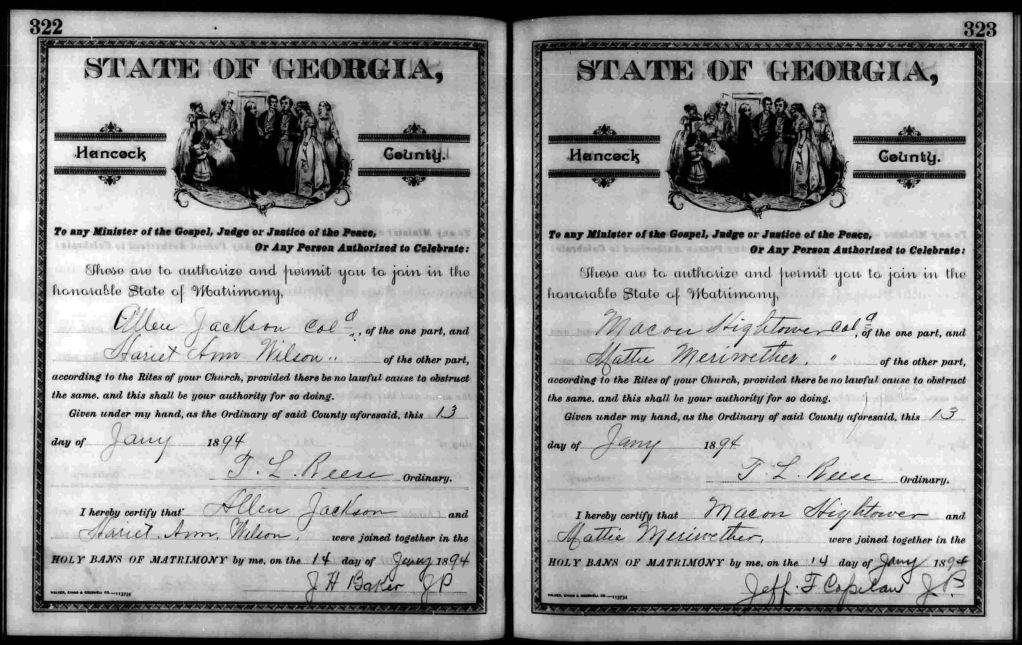 322
STATE OF GEORGIA,
Hancock County.
To any Minister of the Gospel, Judge or Justice of the Peace,
Or Any Person Authorized to Celebrate:
These are to authorize and permit you to join in the
honorable State of Matrimony,
Allen Jackson Cold, of the one part, and
Hariet Ann Wilson " of the other part,
according to the Rites of your Church, provided there be no lawful cause to obstruct
the same, and this shall be your authority for so doing.
Given under my hand, as the Ordinary of said County aforesaid, this 13
day of Jany 1894
T. L. Reese Ordinary.
I hereby certify that Allen Jackson and
Hariet Ann Wilson, were joined together in the
HOLY BANS OF MATRIMONY by me, on the 14 day of Jany 1894
J H Baker JP
323
STATE OF GEORGIA,
Hancock County.
To any Minister of the Gospel, Judge or Justice of the Peace,
Or Any Person Authorized to Celebrate:
These are to authorize and permit you to join in the
honorable State of Matrimony,
Macon Hightower Cold, of the one part, and
Mattie Meriwether, " of the other part,
according to the Rites of your Church, provided there be no lawful cause to obstruct
the same, and this shall be your authority for so doing.
Given under my hand, as the Ordinary of said County aforesaid, this 13
day of Jany 1894
T. L. Reese Ordinary.
I hereby certify that Macon Hightower and
Mattie Meriwether, were joined together in the
HOLY BANS OF MATRIMONY by me, on the 14 day of Jany 1894
Jeff. F Copelan J.P.